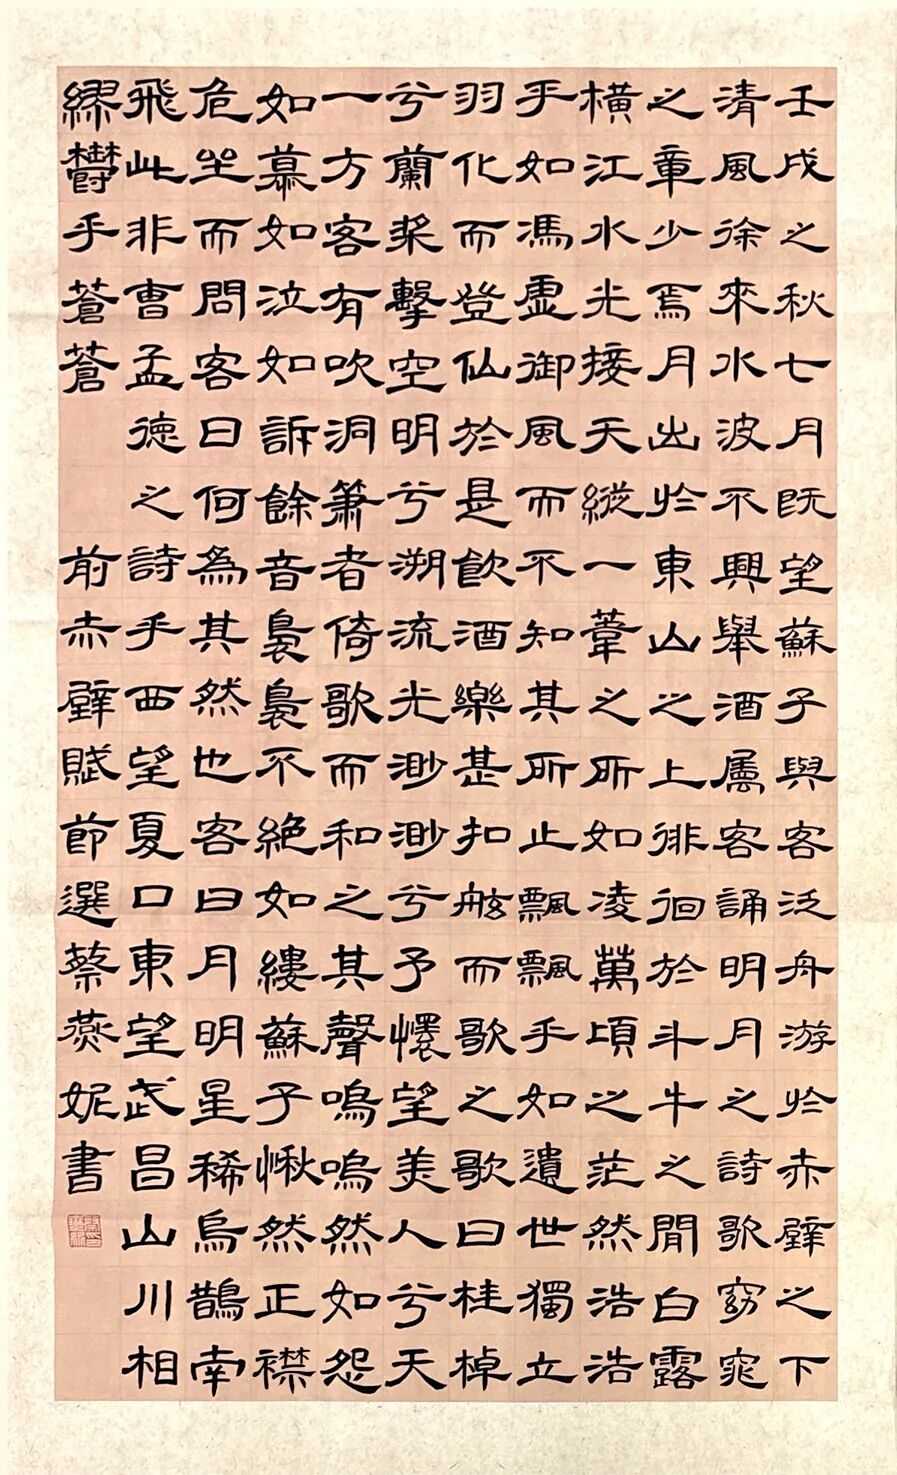 壬戌之秋七月既望蘇子與客泛舟游於赤壁之下
清風徐來水波不興舉酒属客誦明月之詩歌窈窕
之章少焉月出於東山之上徘徊於斗牛之間白露
横江水光接天縱一葦之所如凌萬頃之茫然浩浩
乎如馮虛御風而不知其所止飄飄乎如遺世獨立
羽化而登仙於是飲酒樂甚扣舷而歌之歌曰桂棹
兮蘭槳擊空明兮溯流光渺渺兮予懷望美人兮天
一方客有吹洞簫者倚歌而和之其聲嗚嗚然如怨
如慕如泣如訴餘音裊裊不絶如縷蘇子愀然正襟
危坐而問客曰何為其然也客曰月明星稀烏鵲南
飛此非曹孟德之詩乎西望夏口東望武昌山川相
繆鬱乎蒼蒼 前赤壁賦節選蔡燕妮書